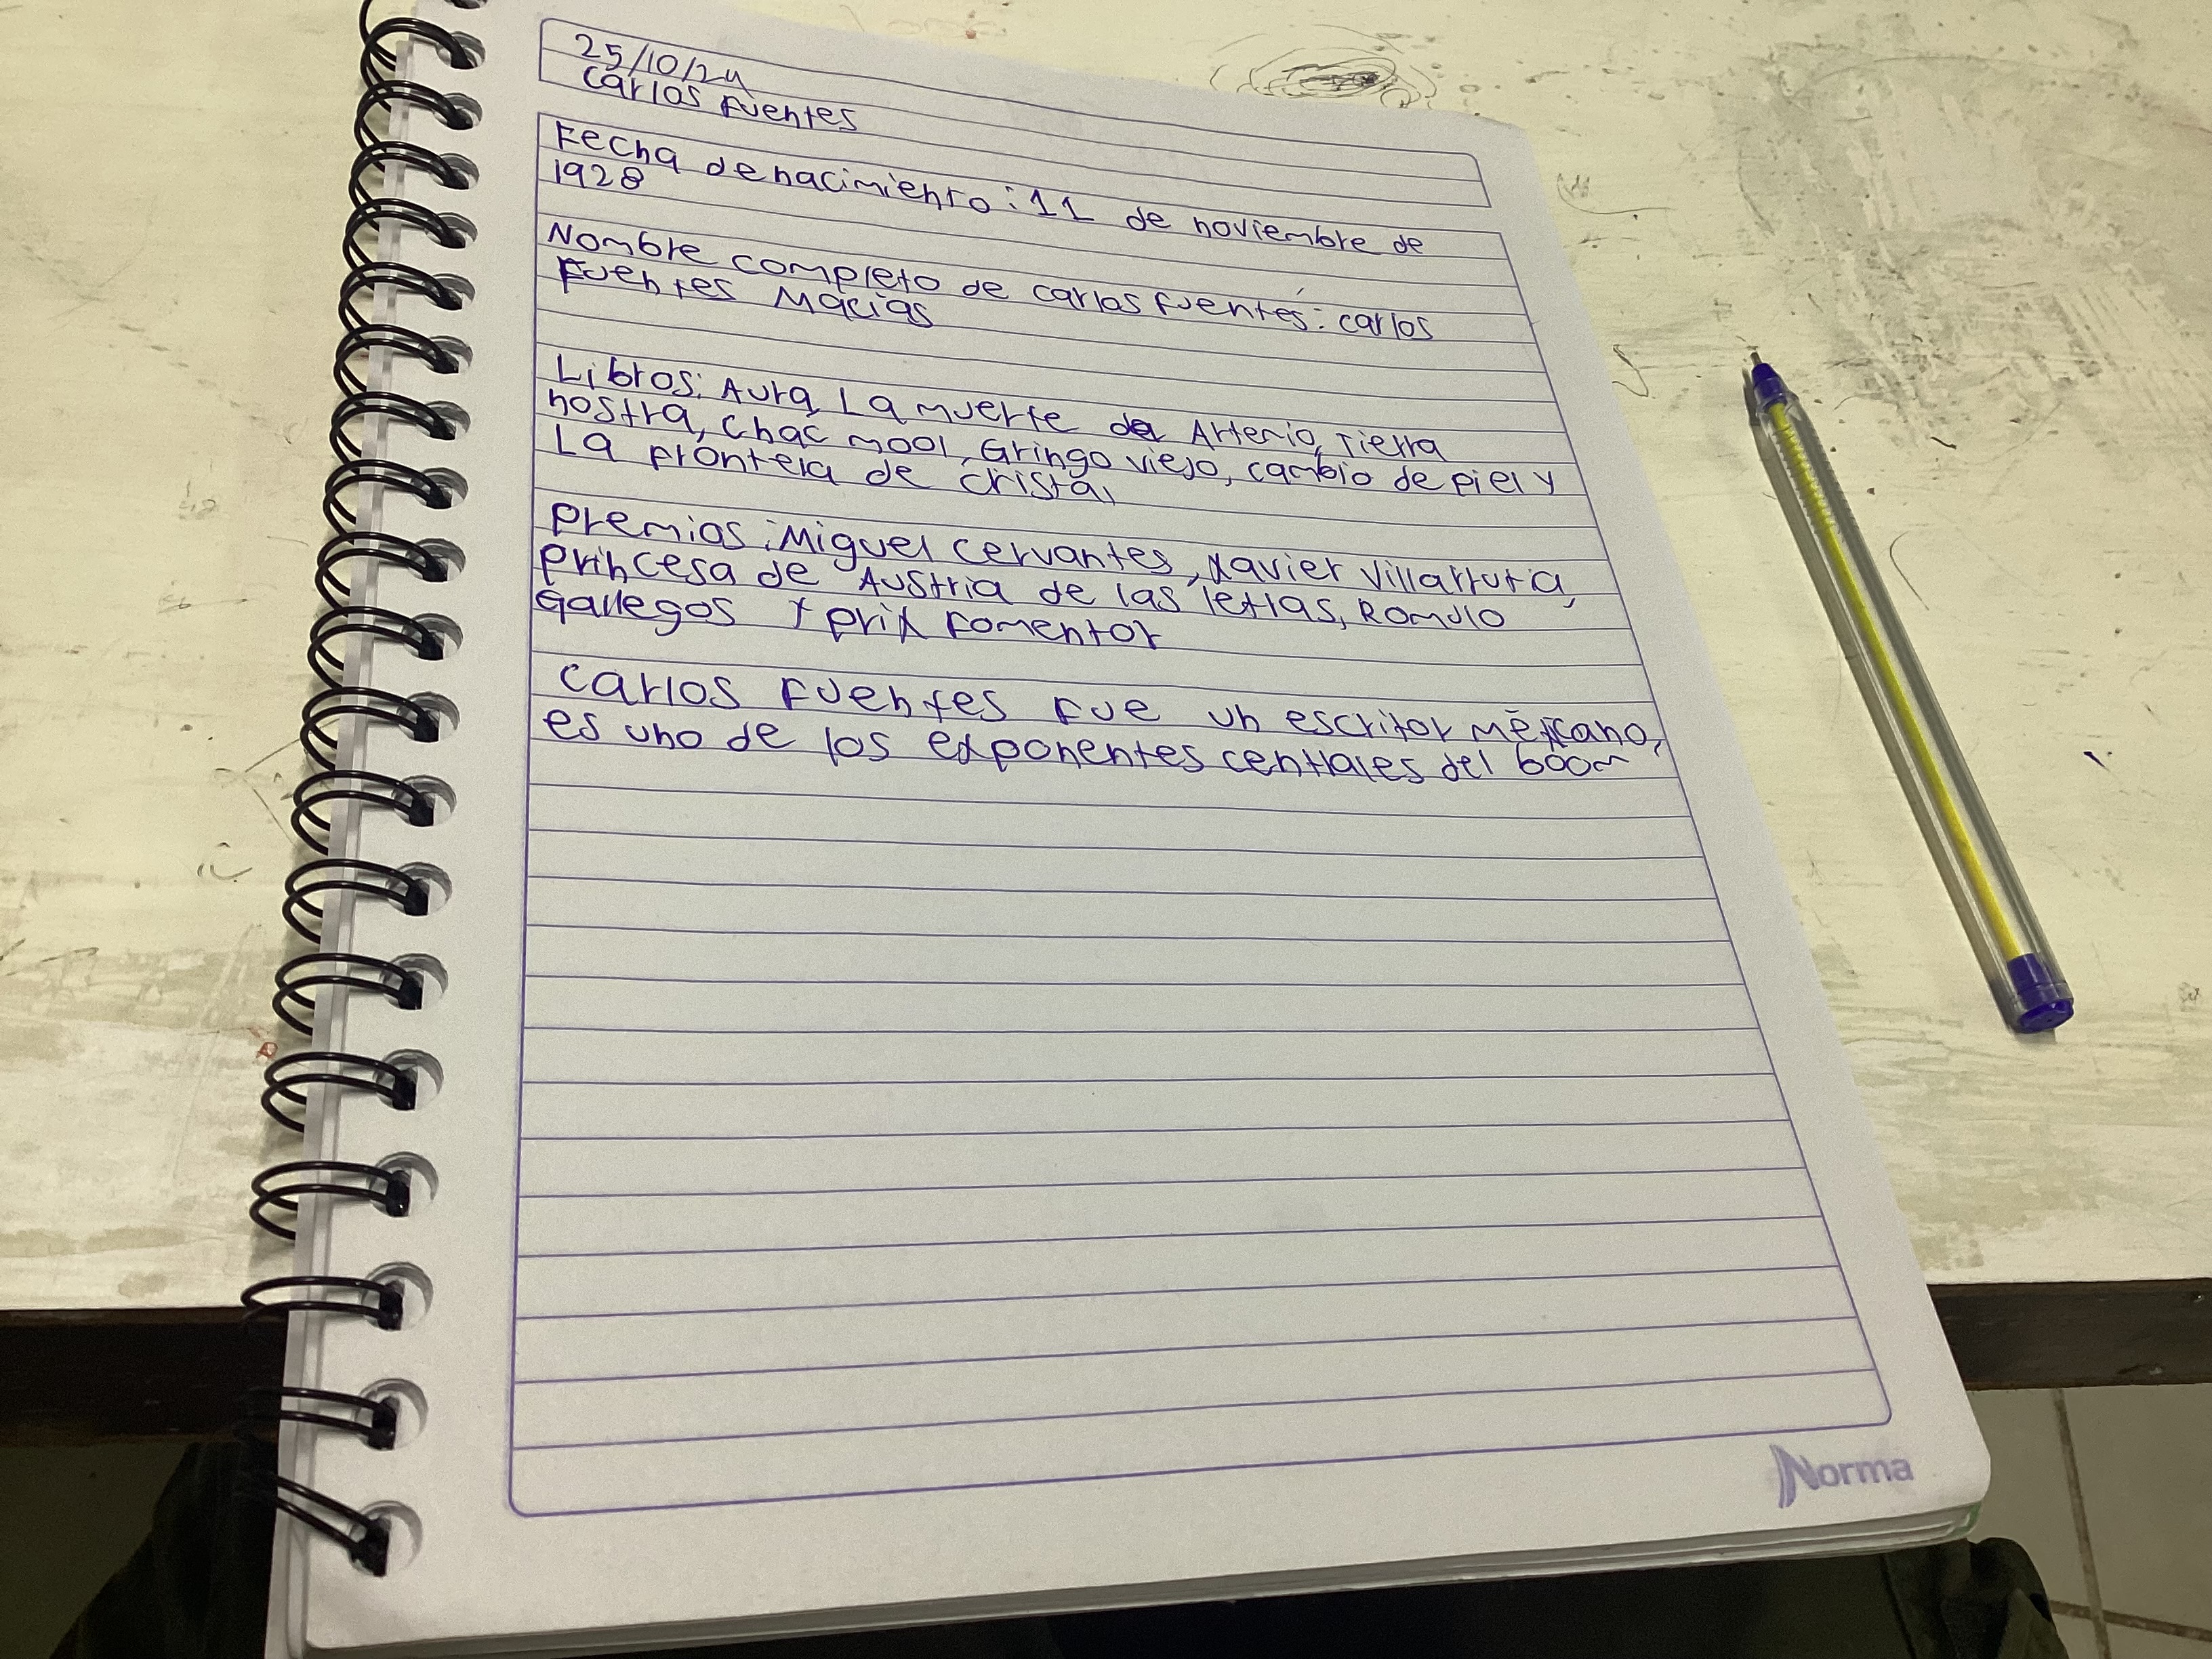 25/10/24
Carlos Fuentes
Fecha de nacimiento: 11 de noviembre de
1928
Nombre completo de carlos fuentes: carlos
Fuentes Macías
Libros: Aura, La muerte de Artemio, Tierra
nostra, Chac mool, Gringo viejo, cambio de piel y
La frontera de cristal
Premios: Miguel Cervantes, Xavier Villarrutia,
princesa de Austria de las letras, Romulo
Gallegos y prix fomentor
Carlos Fuentes fue un escritor mexicano,
es uno de los exponentes centrales del boom
Norma